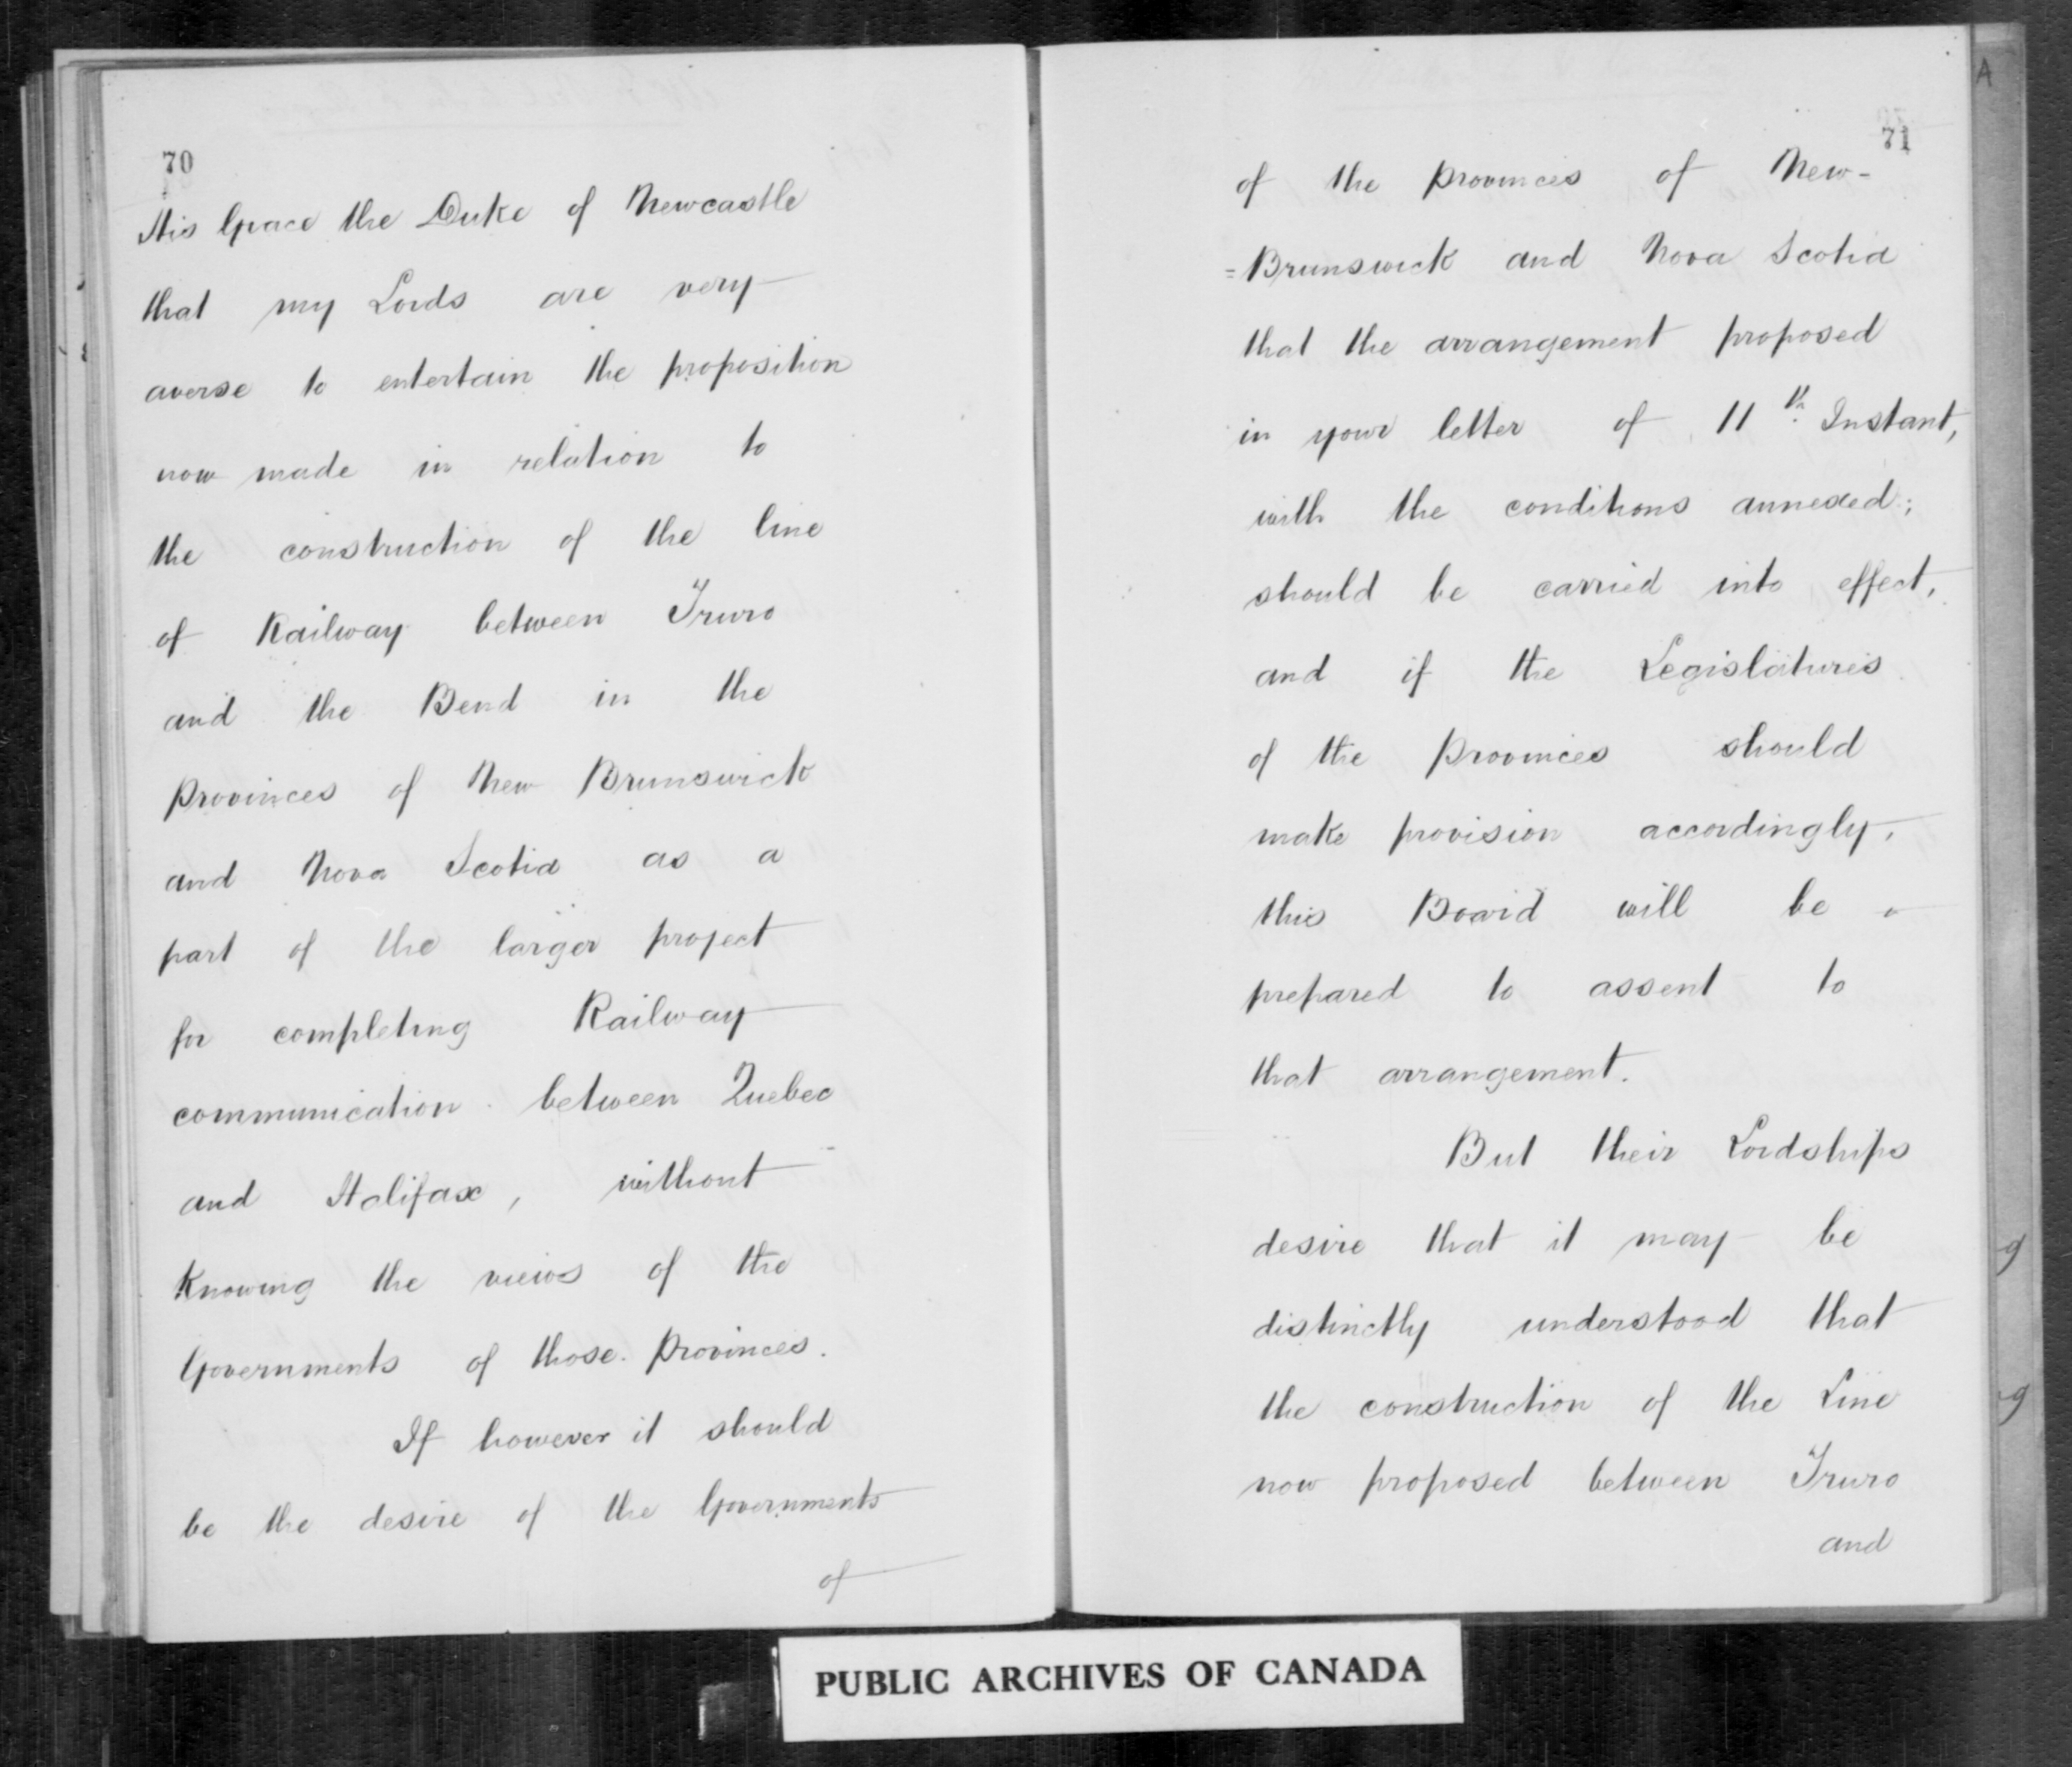 70
His Grace the Duke of Newcastle
that my Lords are very
averse to entertain the proposition
now made in relation to
the construction of the line
of Railway between Truro
and the Bend in the
Provinces of New Brunswick
and Nova Scotia as a
part of the larger project
for completing Railway
communication between Quebec
and Halifax, without
Knowing the views of the
Governments of those Provinces.
If however it should
be the desire of the Governments
of
71
of the Provinces of New-
=Brunswick and Nova Scotia
that the arrangement proposed
in your letter of 11th Instant,
with the conditions annexed;
should be carried into effect,
and if the Legislatures
of the Provinces should
make provision accordingly,
this Board will be
prepared to assent to
that arrangement.
But their Lordships
desire that it may be
distinctly understood that
the construction of the Line
now proposed between Truro
and
A
g
g
PUBLIC ARCHIVES OF CANADA